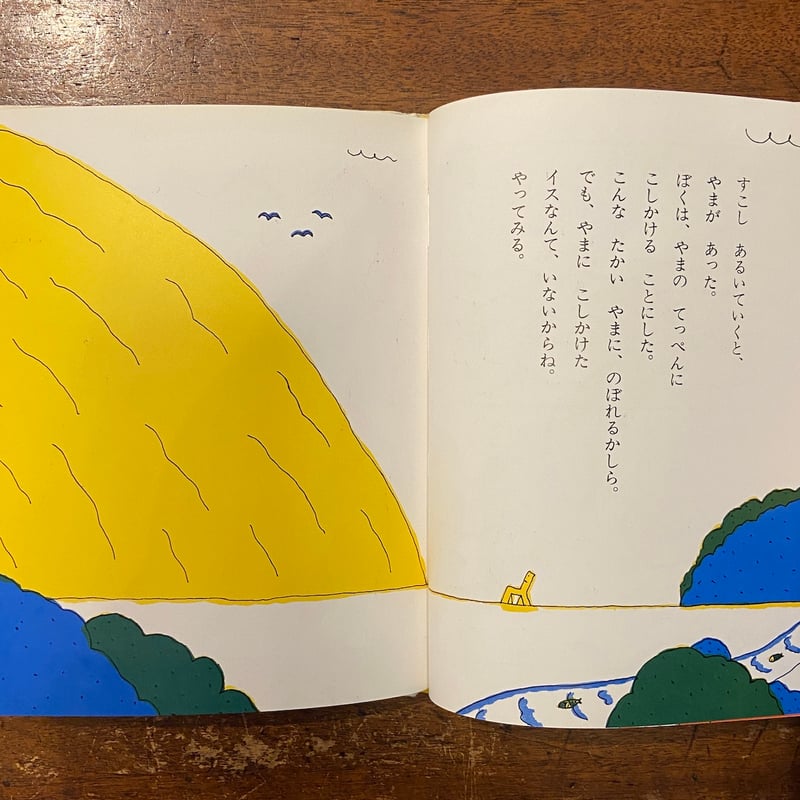 すこし　あるいていくと、
やまが　あった。
ぼくは、やまの　てっぺんに
こしかける　ことにした。
こんな　たかい　やまに、のぼれるかしら。
でも、やまに　こしかけた
イスなんて、いないからね。
やってみる。